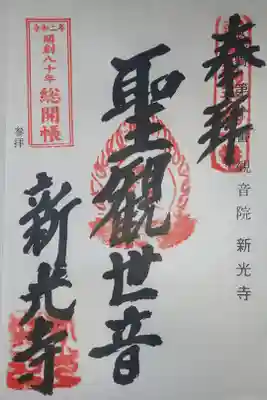 奉拝
観音院 新光寺
聖観世音
令和二年
開創八十年
総開帳
新光寺
参拝